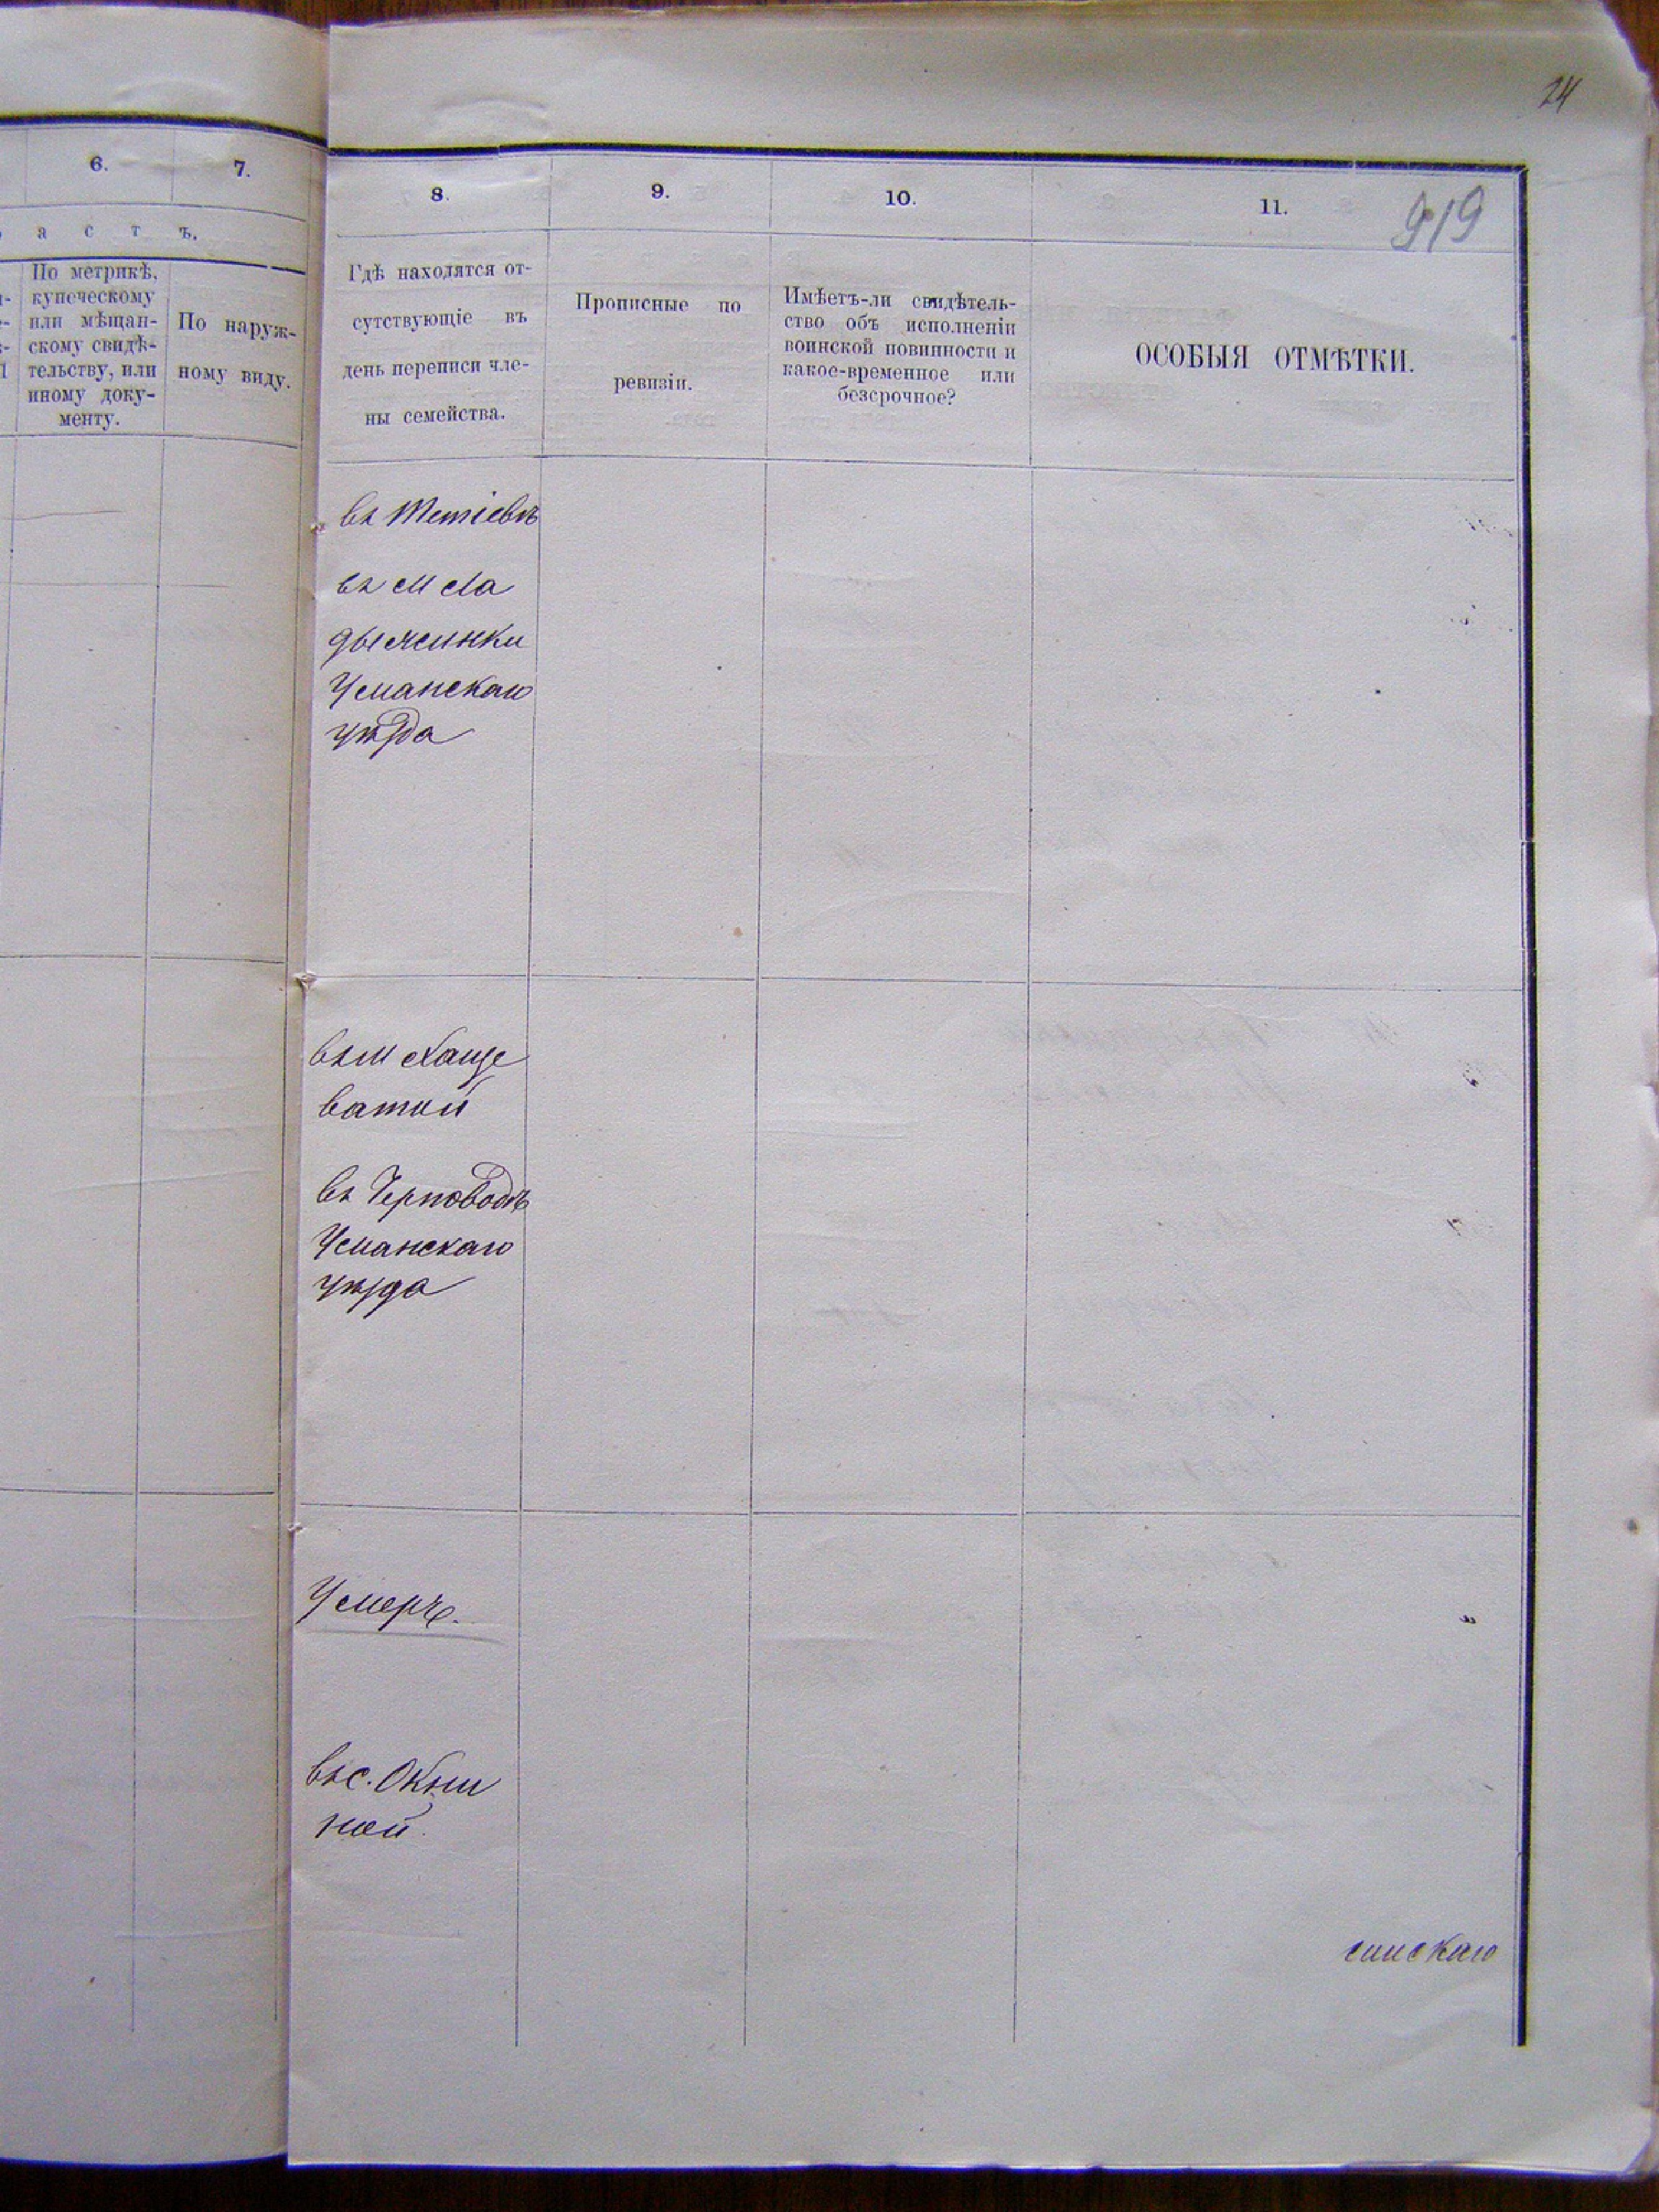 24
6.
7.
а с т ъ.
По метрикѣ,
купеческому
или мѣщан-
скому свидѣ-
тельству, или
иному доку-
менту.
По наруж-
ному виду.
8.
9.
10.
11.
919
Гдѣ находятся от-
сутствующіе въ
день переписи чле-
ны семейства.
Прописные по
ревизіи.
Имѣетъ-ли свидѣтель-
ство объ исполненіи
воинской повинности и
какое-временное или
безсрочное?
ОСОБЫЯ ОТМѢТКИ.
въ Тетіевѣ
въ м Ла
дыжинки
Уманскаго
уѣзда
въ м Хаще
ватой
въ Черноводѣ
Уманскаго
уѣзда
Умеръ.
въ с. Окни
ной